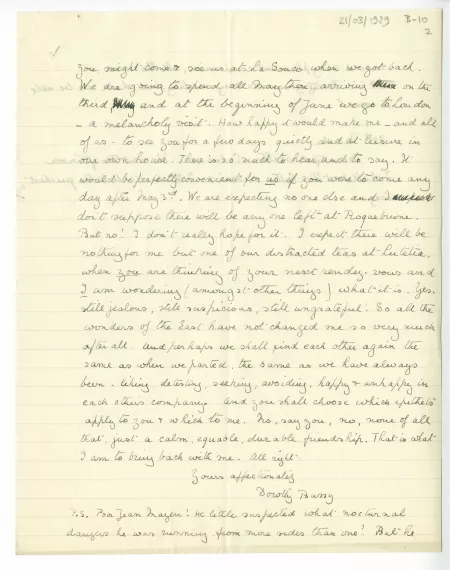 21/03/1929 B-10
2
you might come & see us at La Souco when we got back.
We are going to spend all May there, arriving on the
third and at the beginning of June we go to London
- a melancholy visit. How happy it would make me - and all
of us - to see you for a few days quietly and at leisure in
our own house. There is so much to hear and to say. It
would be perfectly convenient for us if you were to come any
day after May 3rd. We are expecting no one else and I
don't suppose there will be any one left at Roquebrune.
But no! I don't really hope for it. I expect there will be
nothing for me but one of our distracted teas at Lutetia,
when you are thinking of your next rendez-vous and
I am wondering (amongst other things) what it is. Yes,
still jealous, still suspicious, still ungrateful! So all the
wonders of the East have not changed me so very much
after all. And perhaps we shall find each other again the
same as when we parted, the same as we have always
been - liking, detesting, seeking, avoiding, happy & unhappy in
each others company and you shall choose which epithets
apply to you & which to me. No, say you, no, none of all
that, just a calm, equable, durable friendship. That is what
I am to bring back with me. All right.
Yours affectionately
Dorothy Bussy
P.S. Poor Jean : He little suspected what nocturnal
dangers he was running from more sides than one! But he